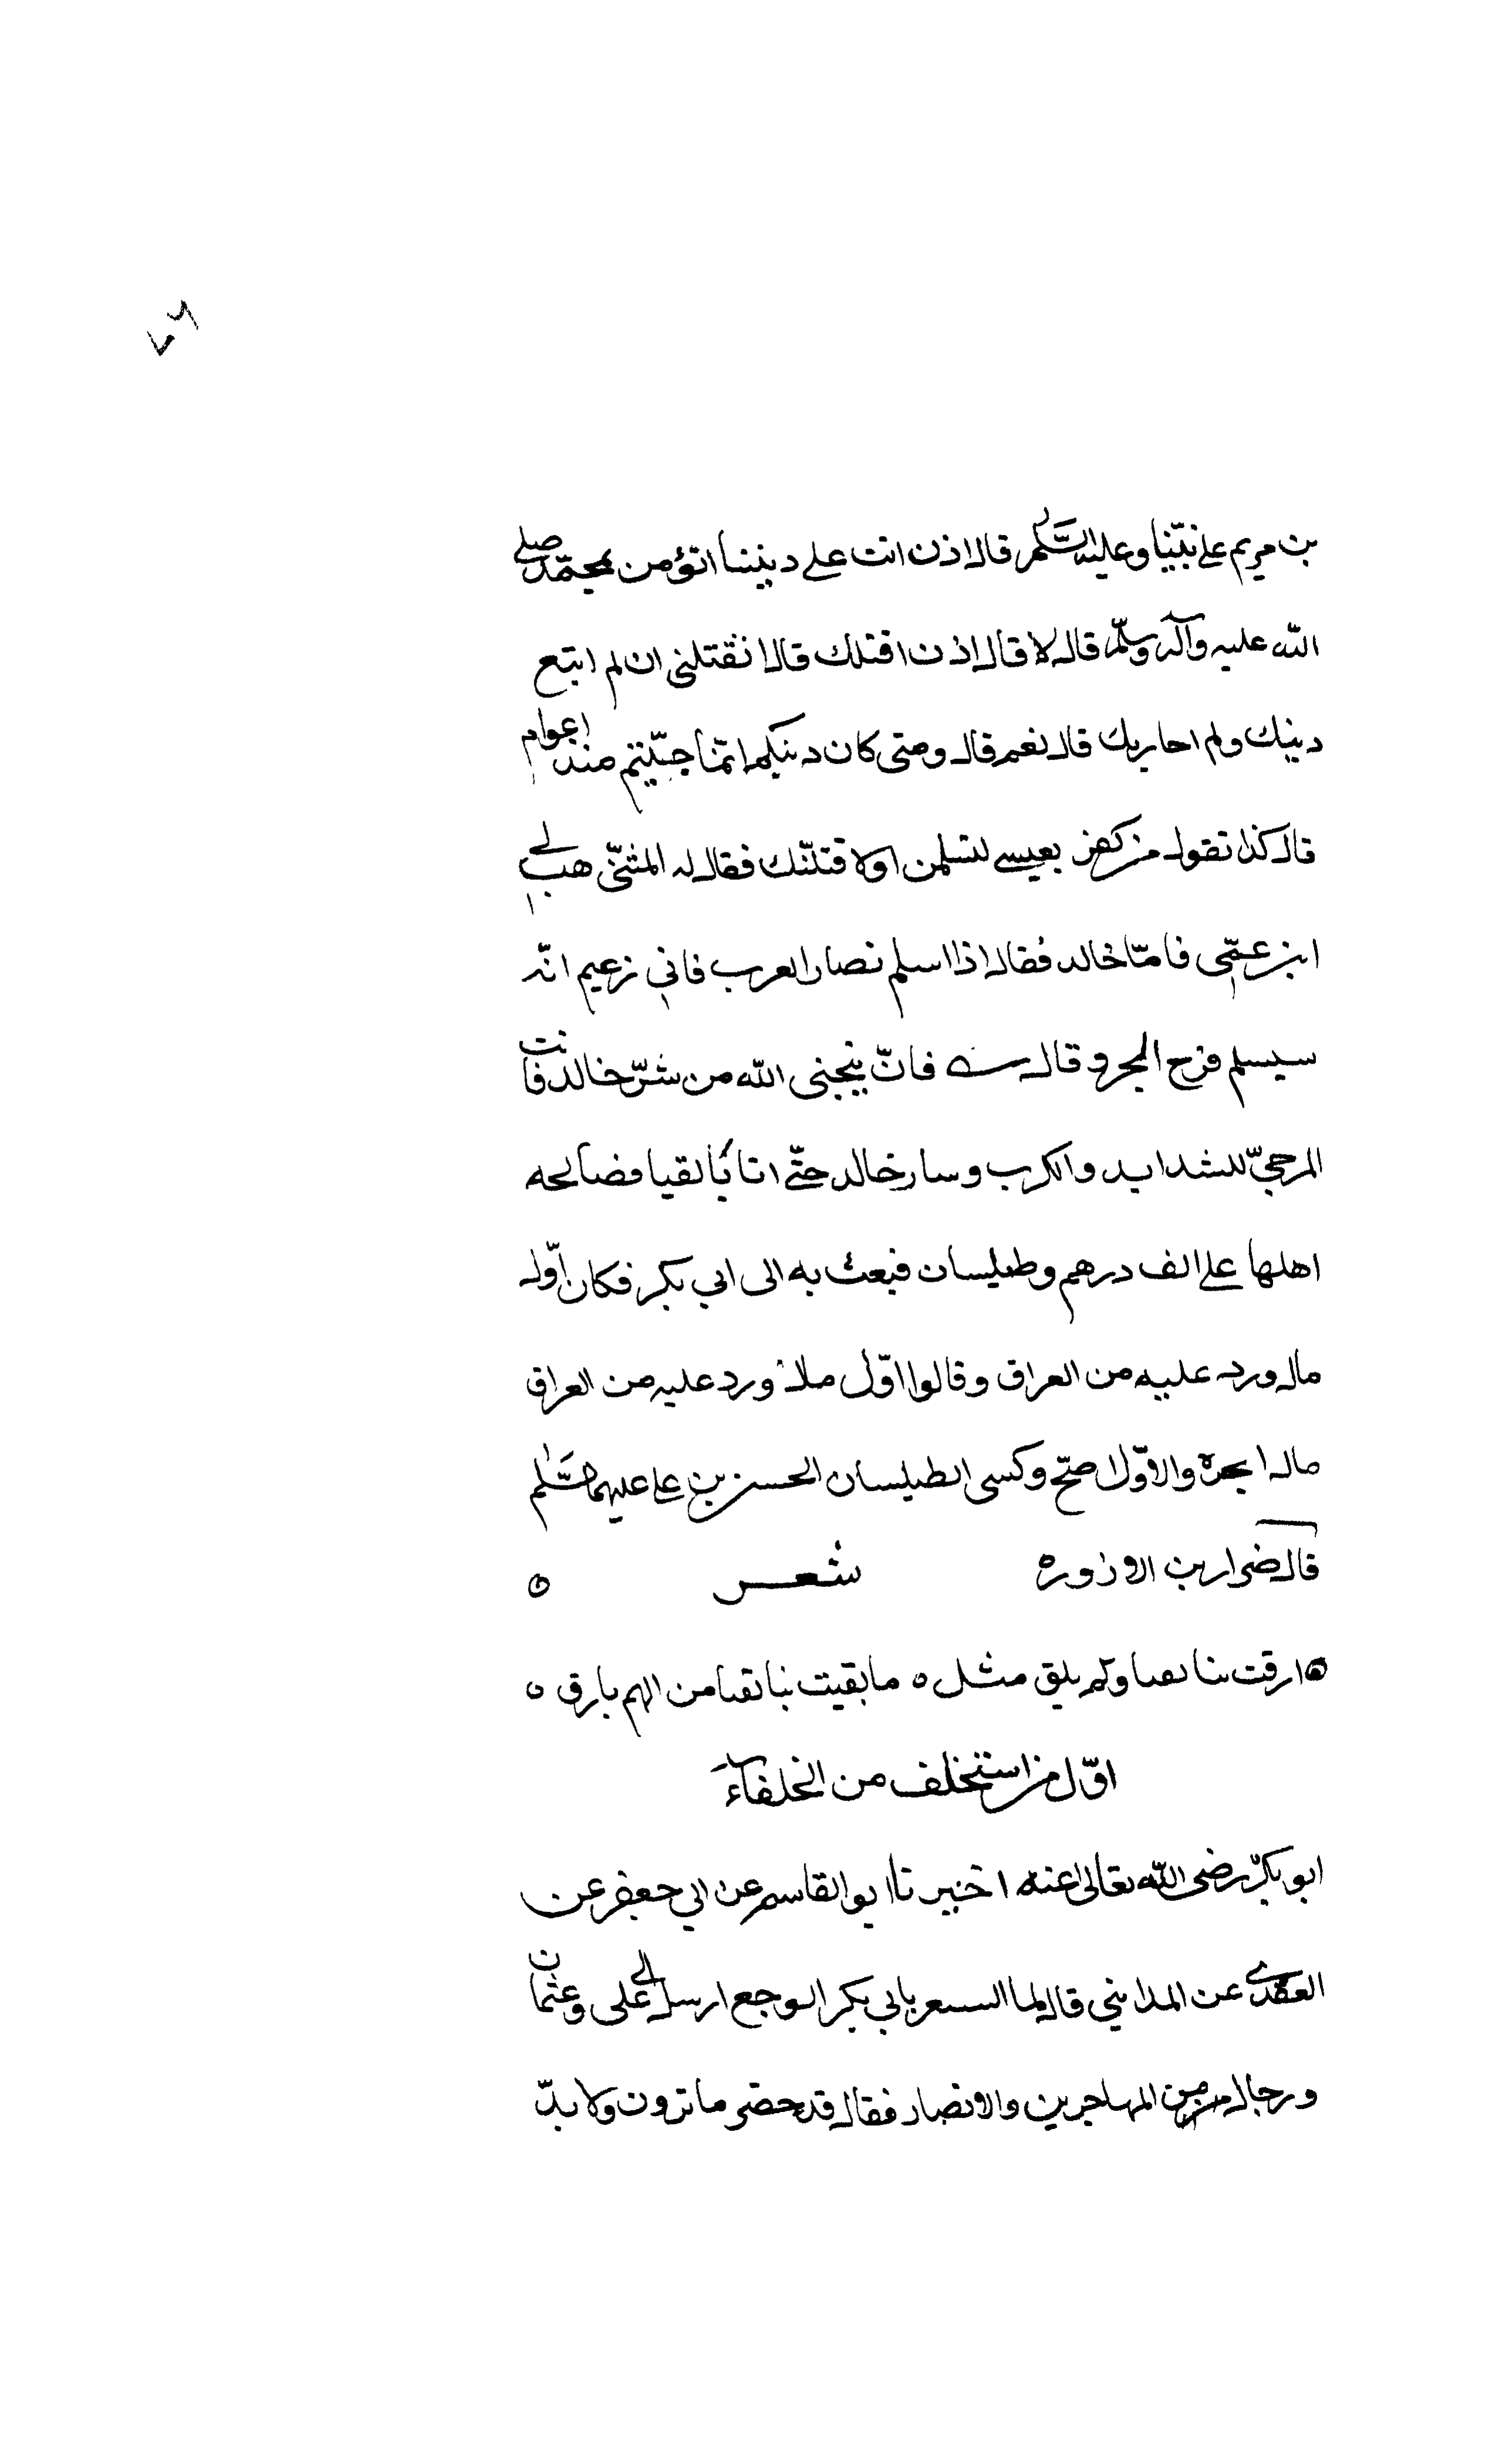 ٦٧
بن مريم على نبيّنا وعليه السَّلم قال اذن انت على ديننا اتؤمن بمحمّد صلى
اللّه عليه وآله وسلّم قال لا قال اذن اقتلك قال اتقتلنى ان لم اتبع
دينك ولم احاربك قال نعم قال ومتى كان دينكم انّما جئتم منذ اعوام
قال كذا تقول من كفر بعيسى لتسلمن اولا قتلنّك فقال له المثنّى هب لى
ابن عمّى فامّا خالد فقال اذا اسلم نصار العرب فانى زعيم انّه
سيسلم فرح وقال فانّ ينجنى اللّه من شرّ خالد فانت
المرجىّ للشدايد والكرب وسار خالد حتّى اتا بانقيا فصالحه
اهلها على الف درهم وطيلسان فبعث به الى ابي بكر فكان اوّل
مال ورد عليه من العراق وقالوا اوّل مال ورد عليه من العراق
مال والاوّل اصحّ وكسى الطيلسان الحسن بن على عليهما السَّلم
قال ضرار بن الازوره شعر ٥
٥ ارقت ببانقيا ولم يلق مثل ٥ ما بقيت ببانقيا من الهم بارق ٥
اوّل من استخلف من الخلفاءَ
ابو بكر رضى اللّه تعالى عنه اخبرنا ابو القاسم عن ابي جعفر عن
العقدى عن المدايني قال لما بابي بكر الوجع ارسل الى على وعثمان
ورجال من المهاجرين والانصار فقال قد حضر ما ترون ولا بدّ